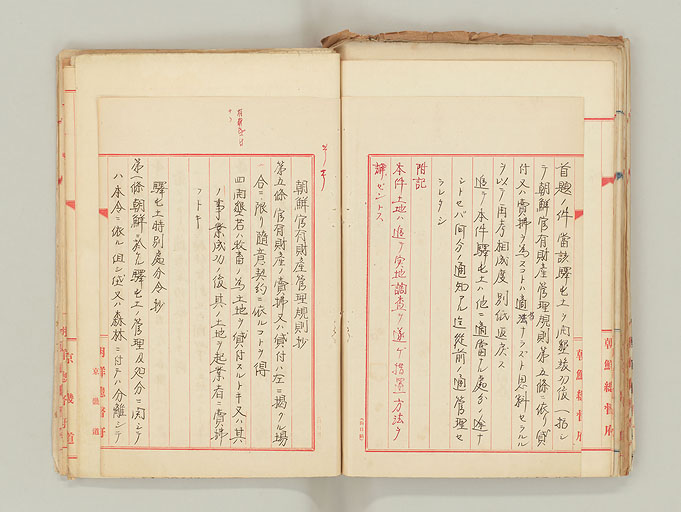 首題ノ件當該驛屯土ヲ開墾竣功後一括シ
テ朝鮮官有財産管理規則第五條ニ依リ貸
付又ハ賣拂ヲ為スコトハ適法ナラズト思料セラルル
ヲ以テ御考相成度別紙返戻ス
追テ本件驛屯土ハ他ニ適當ナル處分ノ途ナ
シトセバ何分ノ通知アル迄從前ノ通管理セ
ラレタシ
附記
本件土地ハ追テ実地調査ヲ遂ケ指置方法ヲ
講ゼントス
朝鮮總督府
朝鮮官有財産管理規則抄
第五條 官有財産ノ賣拂又ハ貸付ハ左ニ掲クル場
合ニ限リ随意契約ニ依ルコトヲ得
四 開墾若ハ牧畜ノ為土地ヲ貸付スルトキ又ハ其
ノ事業成功ノ後其ノ土地ヲ起業者ニ賣拂
フトキ
驛屯土特別處分令抄
第一條 朝鮮ニ於ケル驛屯土ノ管理及処分ニ関シテ
ハ本令ニ依ル但シ垈又ハ森林ニ付テハ分離シテ
朝鮮總督府
京畿道
京畿道